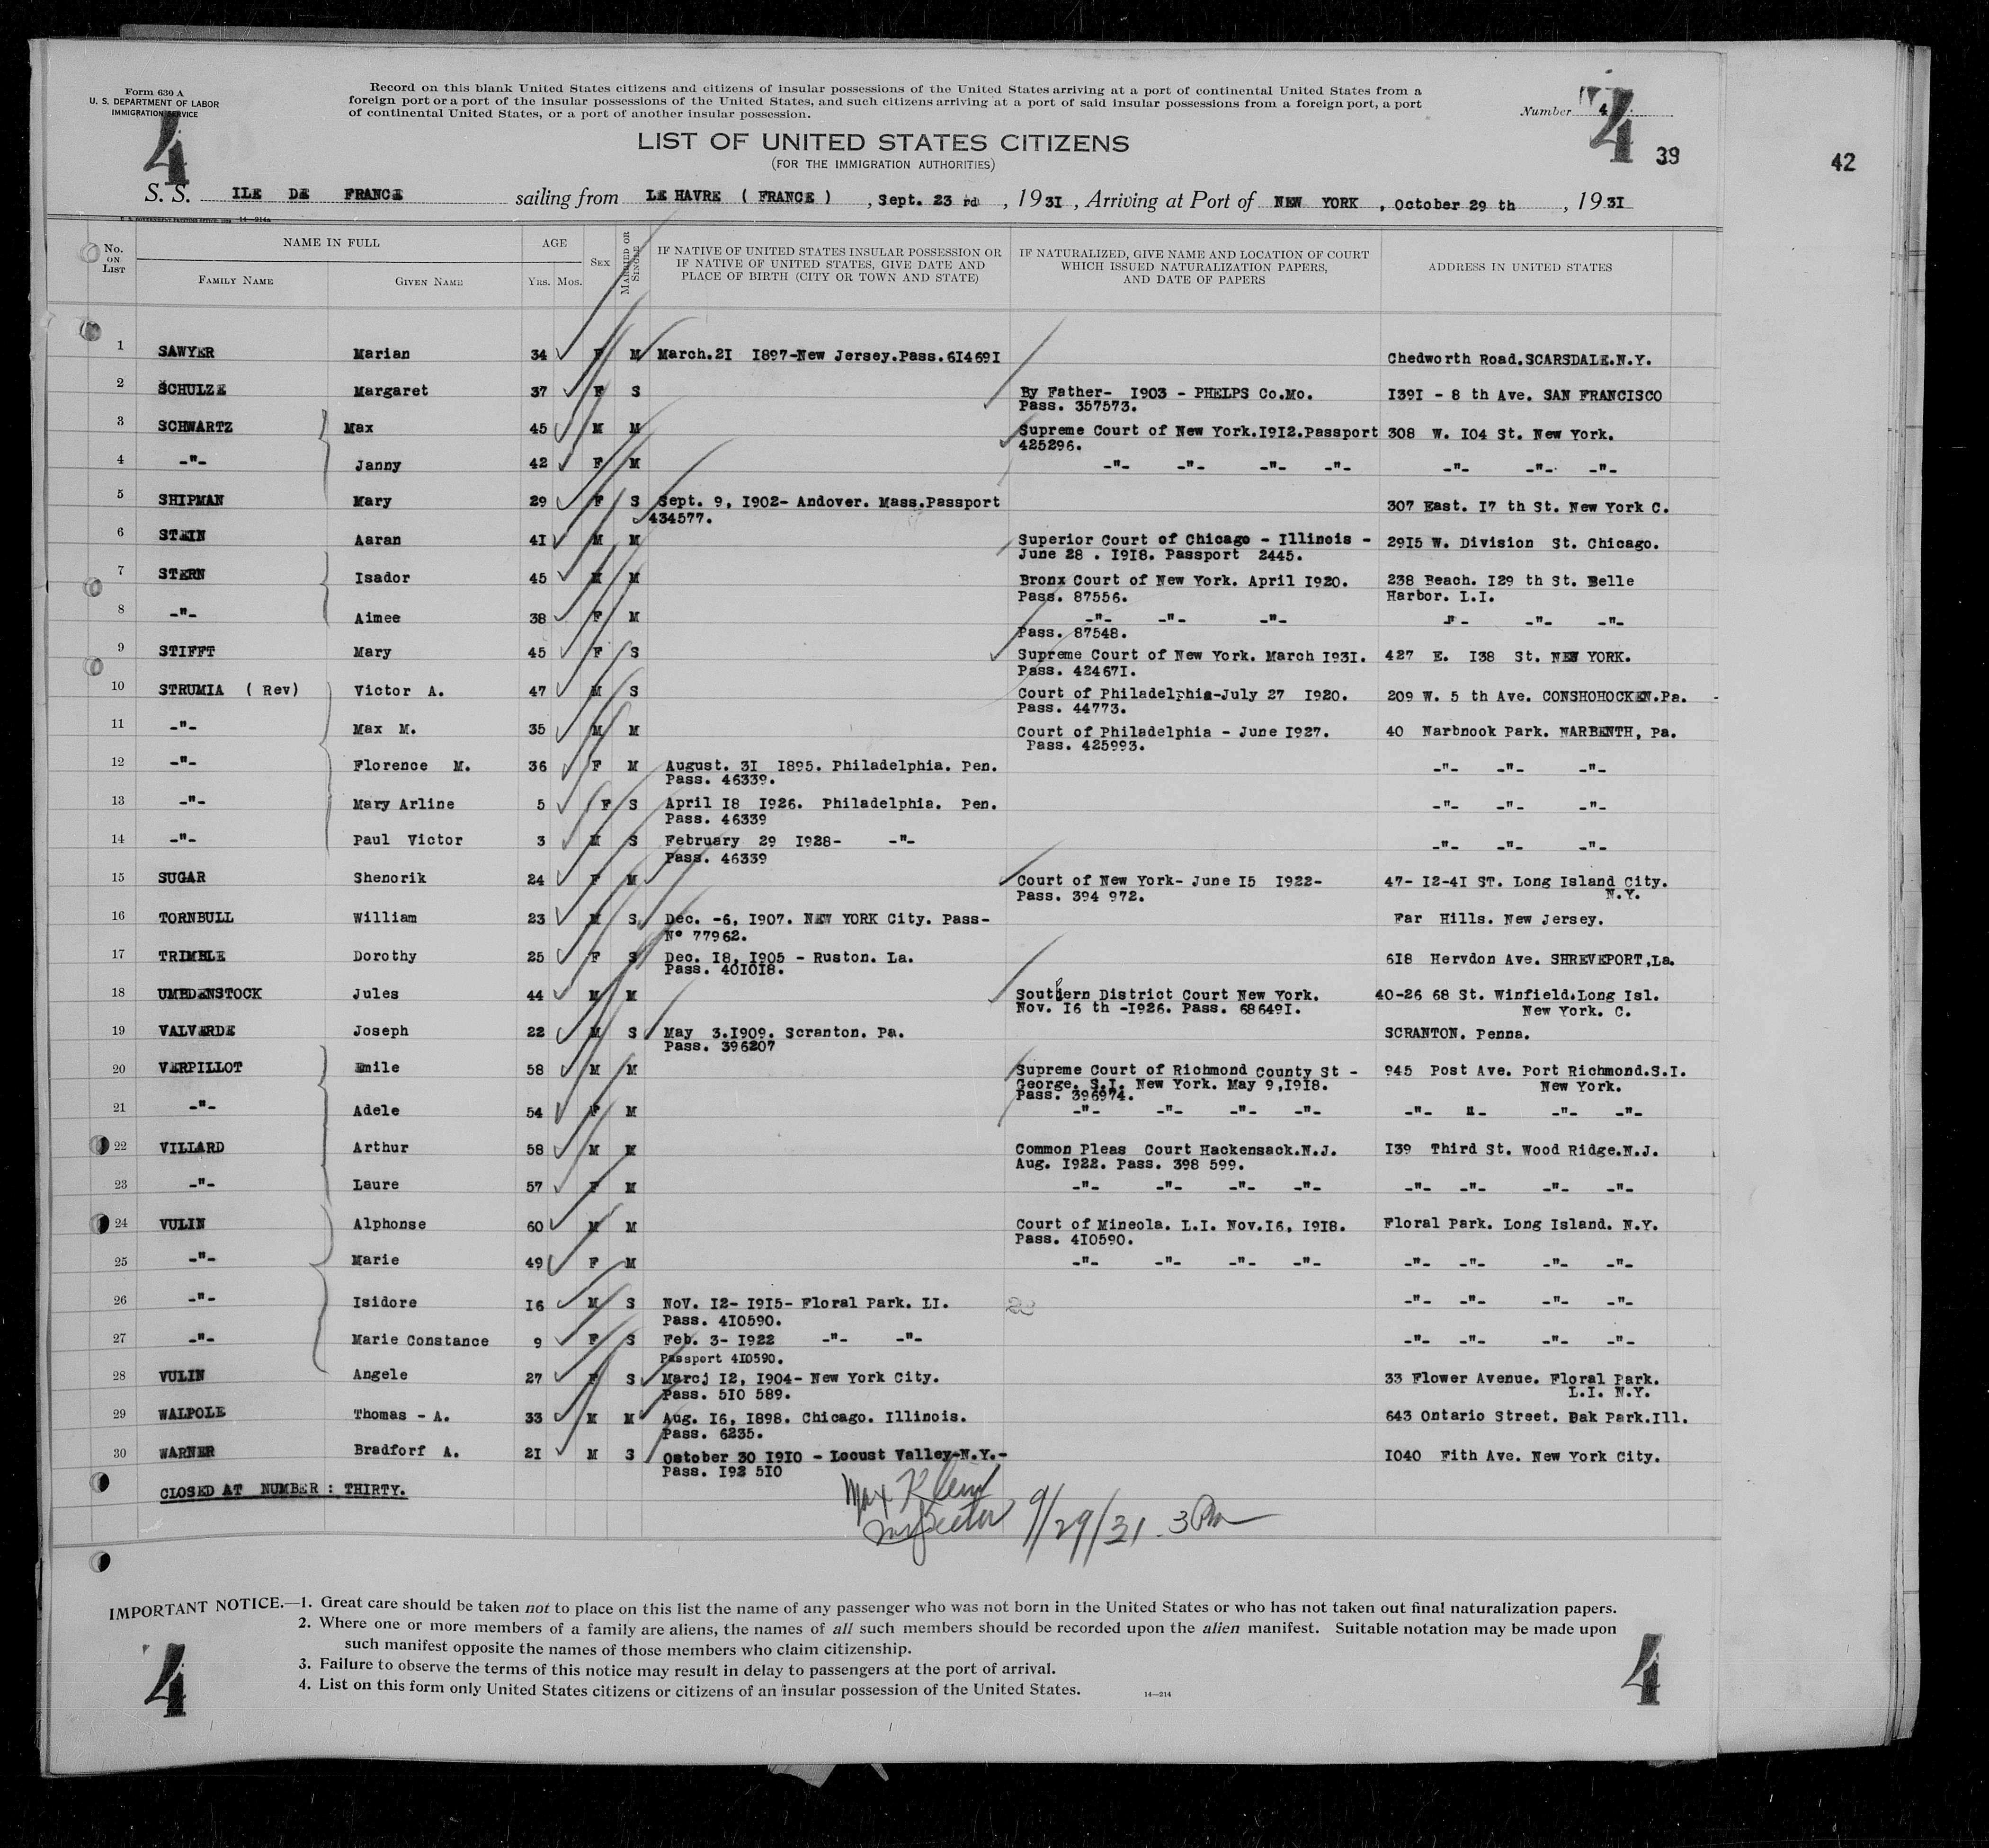 Form 630 A
U. S. DEPARTMENT OF LABOR
IMMIGRATION SERVICE
4
Record on this blank United States citizens and citizens of insular possessions of the United States arriving at a port of continental United States from a
foreign port or a port of the insular possessions of the United States, and such citizens arriving at a port of said insular possessions from a foreign port, a port
of continental United States, or a port of another insular possession.
Number 4
4
39
42
LIST OF UNITED STATES CITIZENS
(FOR THE IMMIGRATION AUTHORITIES)
S. S. ILE DE FRANCE sailing from LE HAVRE ( FRANCE ) , Sept. 23 rd , 1931 , Arriving at Port of NEW YORK , October 29 th , 1931
14—214a
No. ON LIST
NAME IN FULL
FAMILY NAME
GIVEN NAME
AGE
YRS. MOS.
SEX
MARRIED OR SINGLE
IF NATIVE OF UNITED STATES INSULAR POSSESSION OR
IF NATIVE OF UNITED STATES, GIVE DATE AND
PLACE OF BIRTH (CITY OR TOWN AND STATE)
IF NATURALIZED, GIVE NAME AND LOCATION OF COURT
WHICH ISSUED NATURALIZATION PAPERS,
AND DATE OF PAPERS
ADDRESS IN UNITED STATES
1 SAWYER Marian 34 F M March.2I I897-New Jersey.Pass.6I469I Chedworth Road.SCARSDALE.N.Y.
2 SCHULZE Margaret 37 F S By Father- I903 - PHELPS Co.Mo. I39I - 8 th Ave. SAN FRANCISCO
Pass. 357573.
3 SCHWARTZ Max 45 M M Supreme Court of New York.I9I2.Passport 308 W. I04 St. New York.
425296.
4 -"- Janny 42 F M -"- -"- -"- -"- -"- -"- -"-
5 SHIPMAN Mary 29 F S Sept. 9, I902- Andover. Mass.Passport 307 East. I7 th St. New York C.
434577.
6 STEIN Aaran 4I M M Superior Court of Chicago - Illinois - 29I5 W. Division St. Chicago.
June 28 . I9I8. Passport 2445.
7 STERN Isador 45 M M Bronx Court of New York. April I920. 238 Beach. I29 th St. Belle
Pass. 87556. Harbor. L.I.
8 -"- Aimee 38 F M -"- -"- -"- -"- -"- -"-
Pass. 87548.
9 STIFFT Mary 45 F S Supreme Court of New York. March I93I. 427 E. I38 St. NEW YORK.
Pass. 42467I.
10 STRUMIA ( Rev) Victor A. 47 M S Court of Philadelphia-July 27 I920. 209 W. 5 th Ave. CONSHOHOCKEN.Pa.
Pass. 44773.
11 -"- Max M. 35 M M Court of Philadelphia - June I927. 40 Narbnook Park. NARBENTH, Pa.
Pass. 425993.
12 -"- Florence M. 36 F M August. 3I I895. Philadelphia. Pen. -"- -"- -"-
Pass. 46339.
13 -"- Mary Arline 5 F S April I8 I926. Philadelphia. Pen. -"- -"- -"-
Pass. 46339
14 -"- Paul Victor 3 M S February 29 I928- -"- -"- -"- -"-
Pass. 46339
15 SUGAR Shenorik 24 F M Court of New York- June I5 I922- 47- I2-4I ST. Long Island City.
Pass. 394 972. N.Y.
16 TORNBULL William 23 M S Dec. -6, I907. NEW YORK City. Pass- Far Hills. New Jersey.
N° 77962.
17 TRIMBLE Dorothy 25 F S Dec. I8, I905 - Ruston. La. 6I8 Hervdon Ave. SHREVEPORT,La.
Pass. 40I0I8.
18 UMBDENSTOCK Jules 44 M M Southern District Court New York. 40-26 68 St. Winfield.Long Isl.
Nov. I6 th -I926. Pass. 68649I. New York. C.
19 VALVERDE Joseph 22 M S May 3.I909. Scranton. Pa. SCRANTON. Penna.
Pass. 396207
20 VERPILLOT Emile 58 M M Supreme Court of Richmond County St - 945 Post Ave. Port Richmond.S.I.
George. S.I. New York. May 9,I9I8. New York.
Pass. 396974.
21 -"- Adele 54 F M -"- -"- -"- -"- -"- "- -"- -"-
22 VILLARD Arthur 58 M M Common Pleas Court Hackensack.N.J. I39 Third St. Wood Ridge.N.J.
Aug. I922. Pass. 398 599.
23 -"- Laure 57 F M -"- -"- -"- -"- -"- -"- -"- -"-
24 VULIN Alphonse 60 M M Court of Mineola. L.I. Nov.I6, I9I8. Floral Park. Long Island. N.Y.
Pass. 4I0590.
25 -"- Marie 49 F M -"- -"- -"- -"- -"- -"- -"- -"-
26 -"- Isidore I6 M S NoV. I2- I9I5- Floral Park. LI. -"- -"- -"- -"-
Pass. 4I0590.
27 -"- Marie Constance 9 F S Feb. 3- I922 -"- -"- -"- -"- -"- -"-
Passport 4I0590.
28 VULIN Angele 27 F S Marcj I2, I904- New York City. 33 Flower Avenue. Floral Park.
Pass. 5I0 589. L.I. N.Y.
29 WALPOLE Thomas - A. 33 M M Aug. I6, I898. Chicago. Illinois. 643 Ontario Street. Oak Park.Ill.
Pass. 6235.
30 WARNER Bradforf A. 2I M S October 30 I9I0 - Locust Valley-N.Y.- I040 Fith Ave. New York City.
Pass. I92 5I0
CLOSED AT NUMBER : THIRTY.
Max Klein
Inspector 9/29/31 - 3 Pm
IMPORTANT NOTICE.—1. Great care should be taken not to place on this list the name of any passenger who was not born in the United States or who has not taken out final naturalization papers.
2. Where one or more members of a family are aliens, the names of all such members should be recorded upon the alien manifest. Suitable notation may be made upon
such manifest opposite the names of those members who claim citizenship.
3. Failure to observe the terms of this notice may result in delay to passengers at the port of arrival.
4. List on this form only United States citizens or citizens of an insular possession of the United States.
14—214
4
4